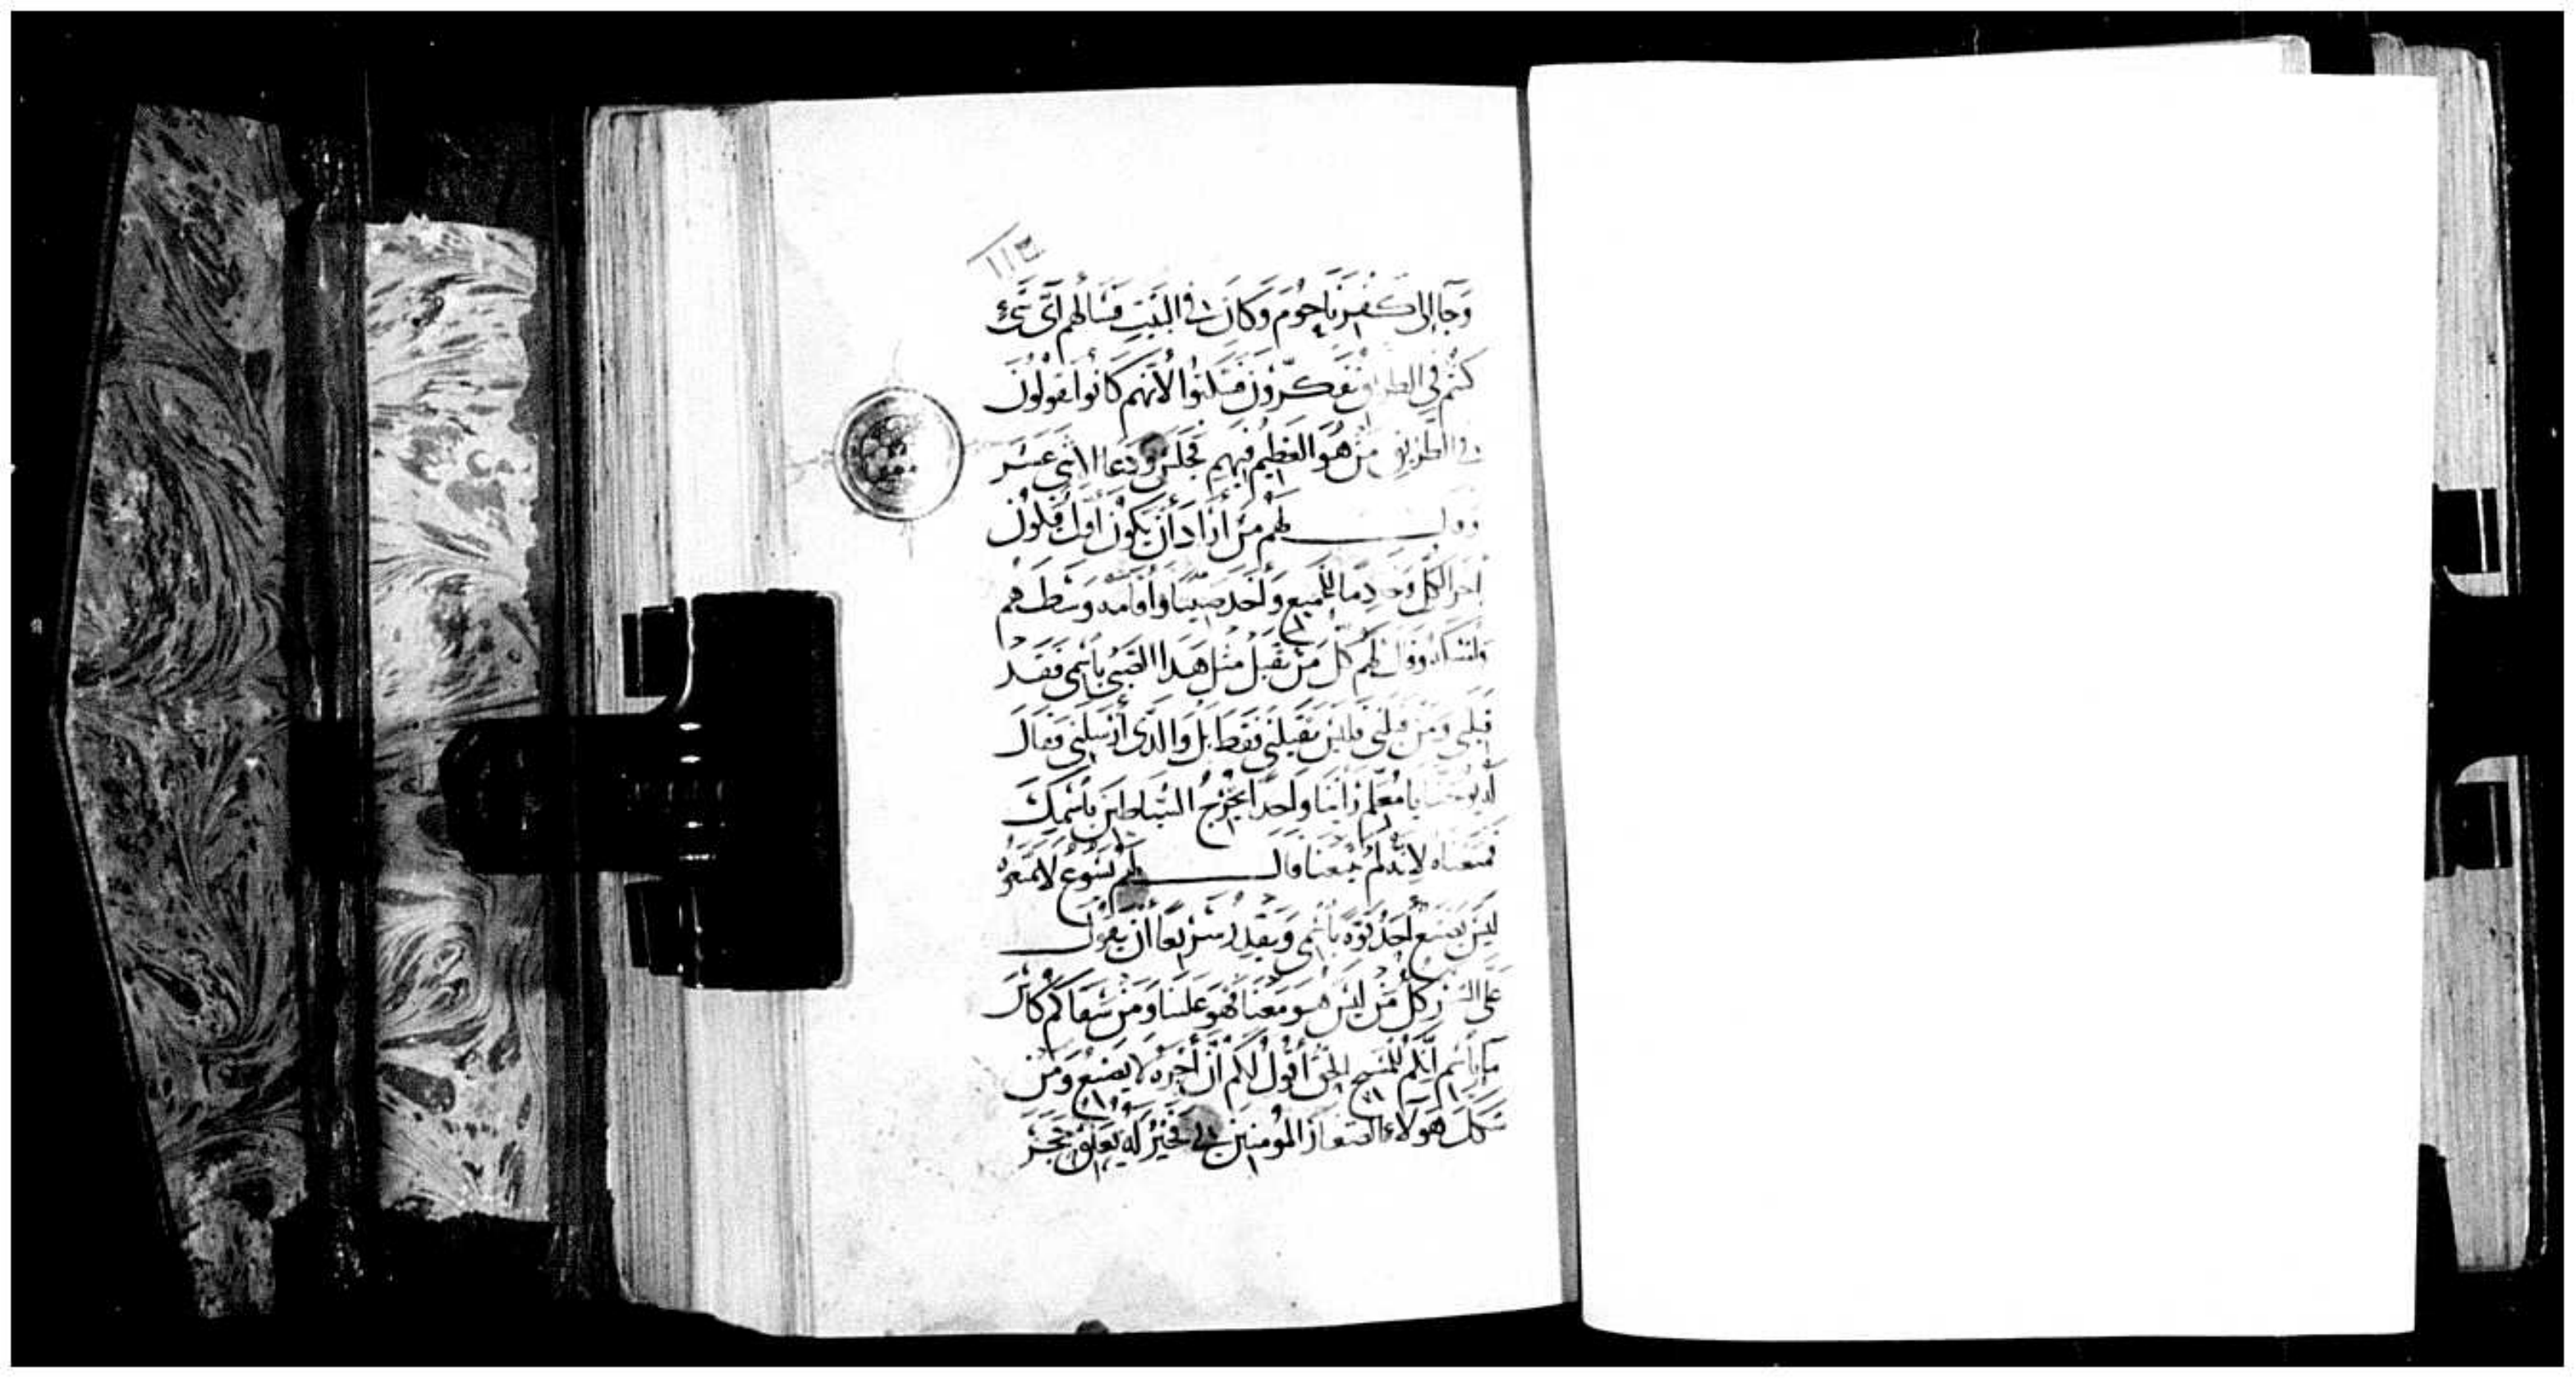 ١١٣
وَجَا إلى كفرناحوم وَكانَ في البَيتِ فسَألهم أىّ شَىْءٍ
كنتم في الطريق تفكرون فسكتوا لأنهم كانوا يقولون
في الطريق مَن هُوَ العَظيم فيهم فجلسَ وَدَعا الاثنى عشر
وقال لهم مَن أرَادَ أن يَكون أول فليكون
اخر الكل وخادمًا للجميع وأخد صبيًا وأقامه وسَطهم
وقال لهم كل من تقبل مثل هَدا الصَبى بأسمى فقد
قبلى ومن قبلنى فليسَ يقبلنى فقط بَل والدى أرْسلنى فقال
له يوحنا يا معَلم رأينا واحدًا يخرج الشياطين بأسمك
فمنعناه لانه لم يتبعنا قال لهم يَسُوع لا تمنعوه
ليسَ يصنع أحَد قوه بأسمى ويقدر سَريعًا أن يقول
على الشر كل من ليس هو معَنا فهو علينا ومن سَقاكم كاس
ما بأسم أنكم للمسيح الحق أقول لكم ان أجره لا يضيع ومن
شكك هولاء الصغار المومنين بى فخير له يعلق حجر